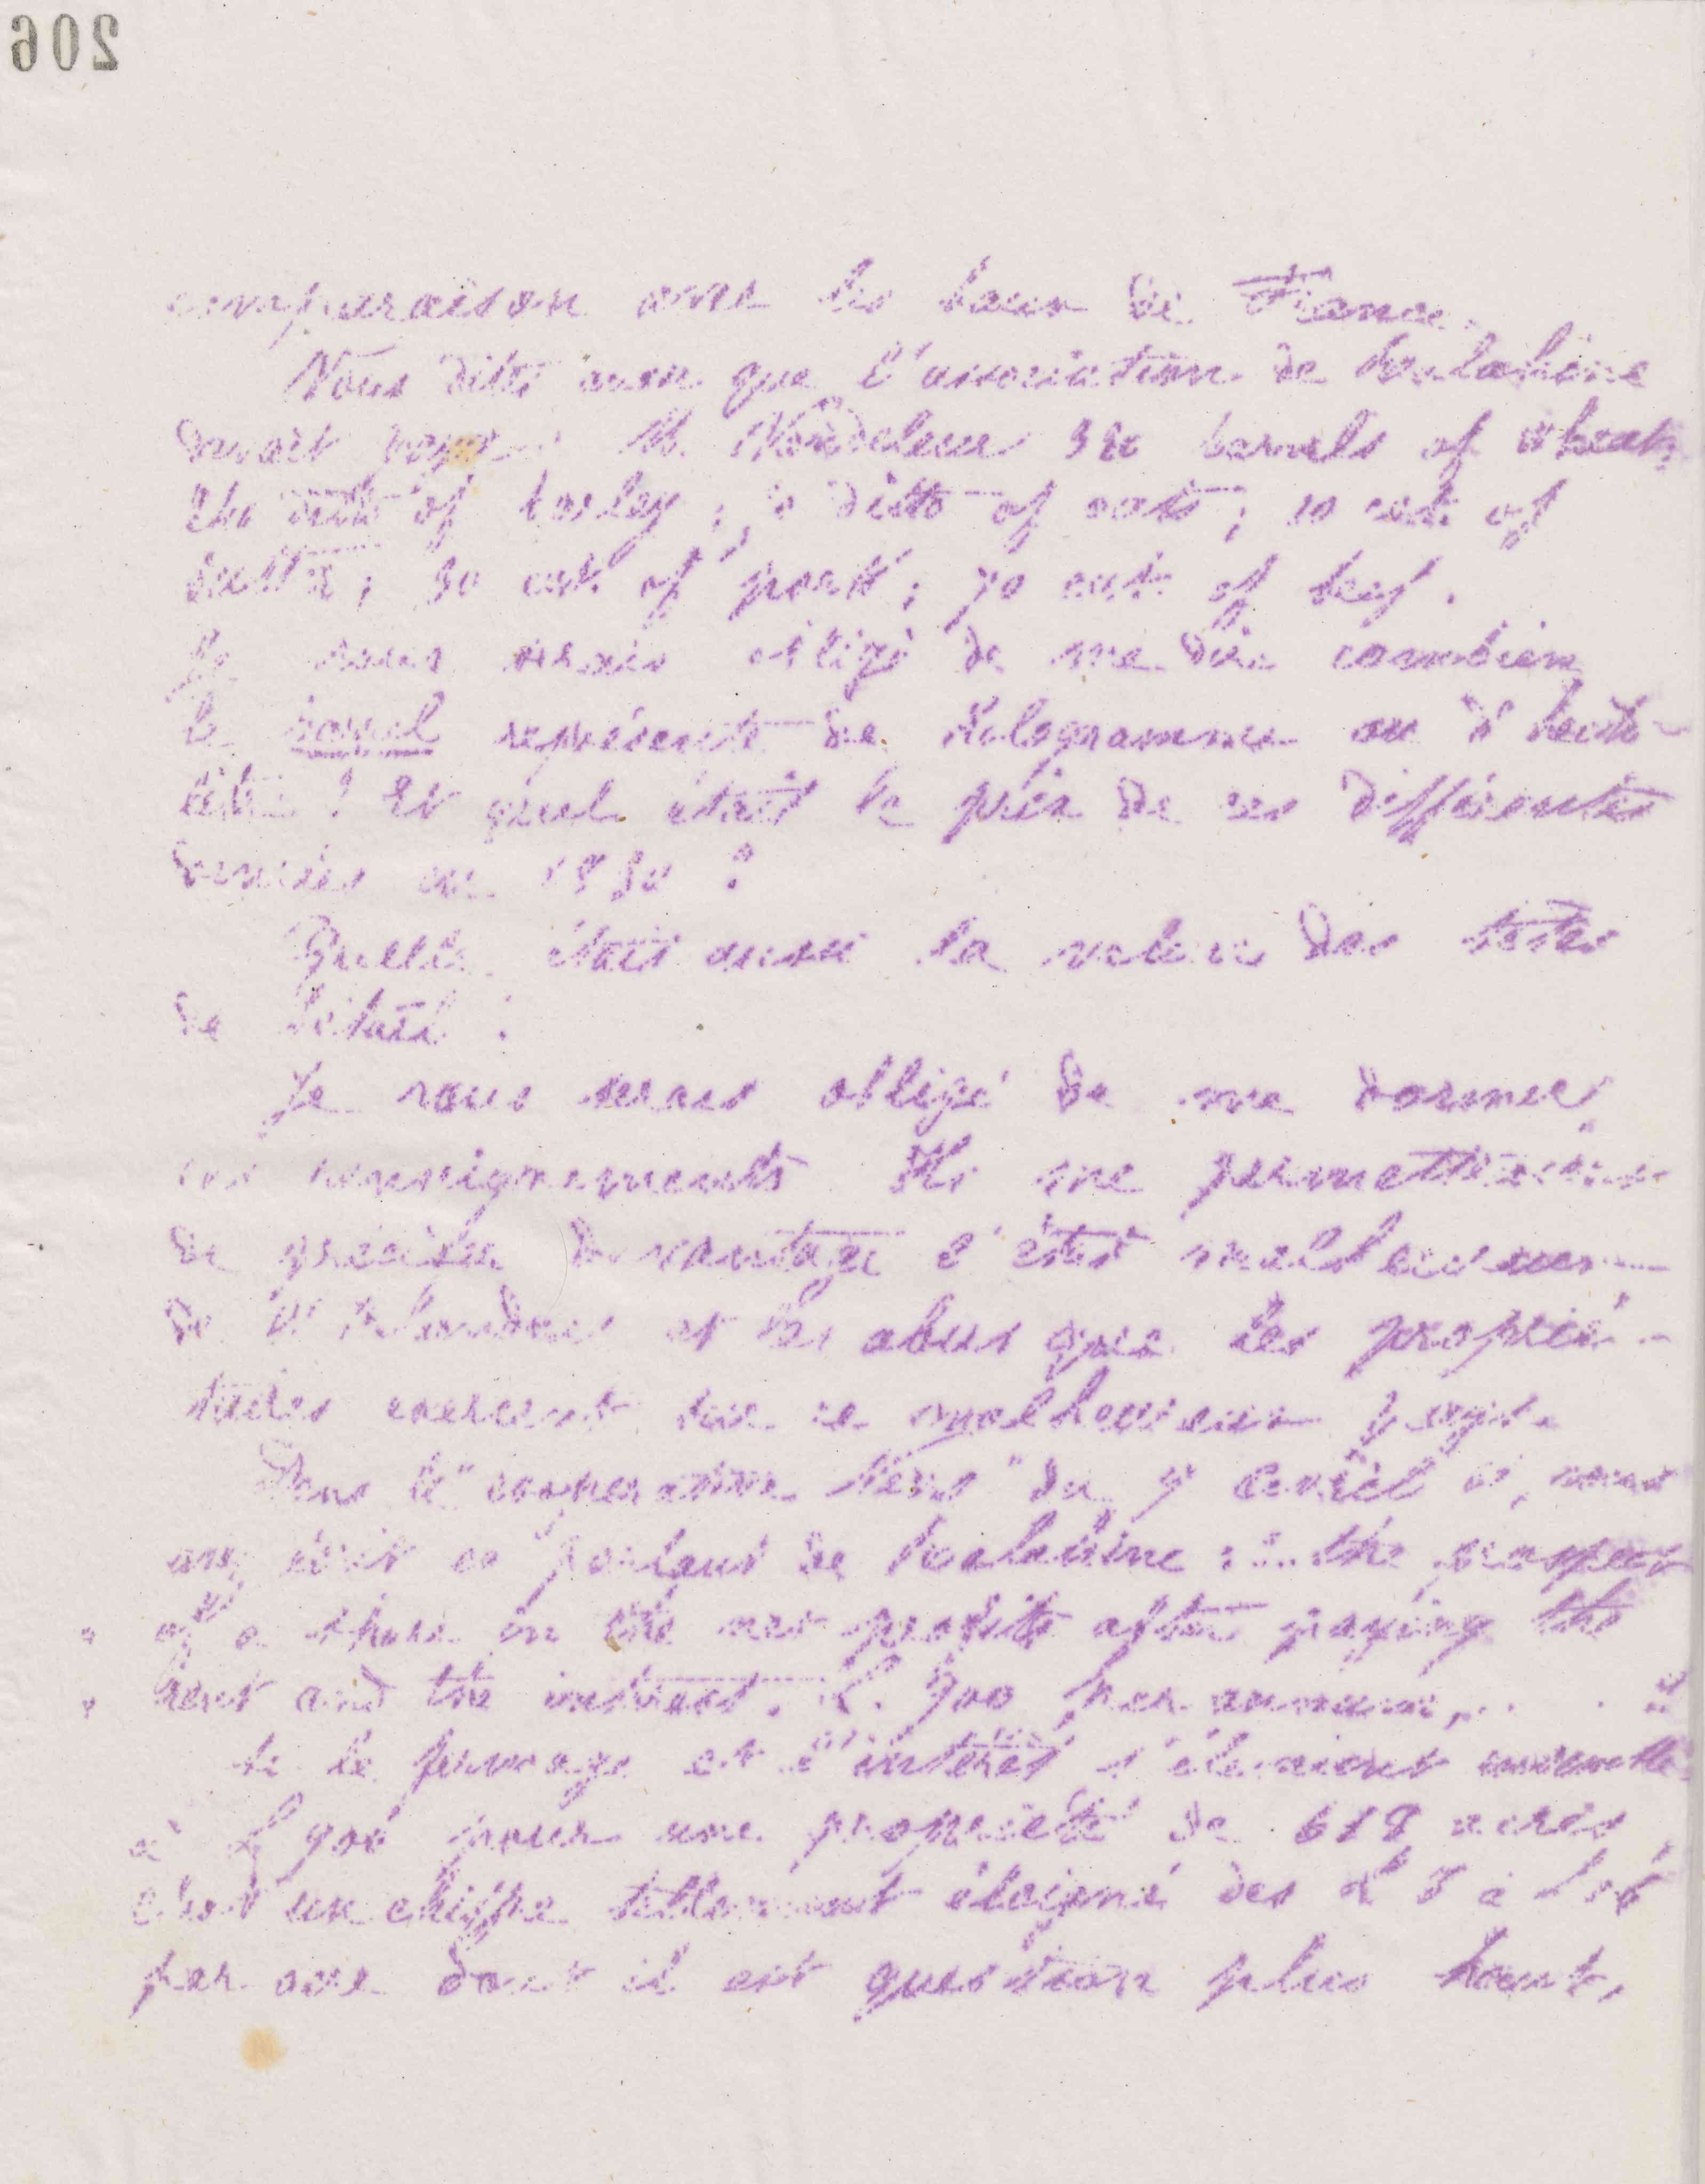 206
comparaison avec les baux de France.
Vous dites aussi que l'association de Ralahine
devait payer M. Vandeleur 320 barrels of wheat;
ditto of barley; ditto of oats; 10 cwt. of
butter; 30 cwt. of pork; 70 cwt. of beef.
Je vous serais obligé de me dire combien
le barrel représente de kilogrammes ou d'hecto-
litres? Et quel était le prix de ces différentes
denrées en 1830?
Quelle était aussi la valeur des têtes
de bétail?
Je vous serais obligé de me donner
ces renseignements. Ils me permettraient
de préciser davantage l'état malheureux
de l'Irlandais et les abus que les proprié-
taires exercent sur ce malheureux pays.
Dans le "cooperative News" du 7 avril, vous
avez écrit en parlant de Ralahine: "... the prospect
" of a share in the net profits after paying the
" rent and the interest. £. 900 per annum, ... "
Si le fermage et l'intérêt s'élevaient ensemble
à £ 900 pour une propriété de 618 acres
c'est un chiffre tellement éloigné des
par acre dont il est question plus haut,